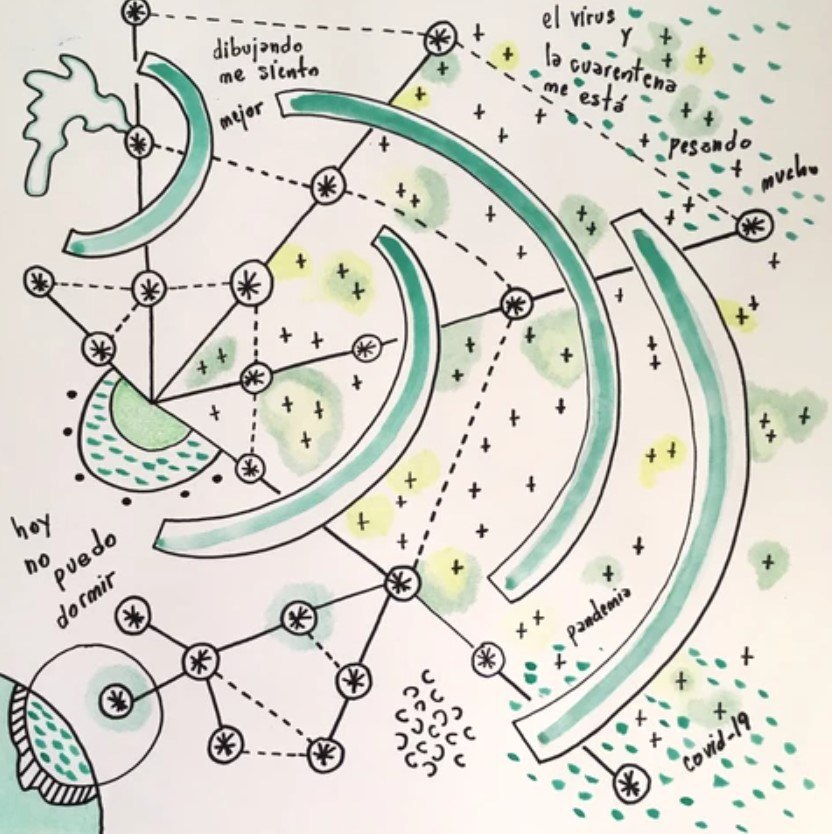 dibujando
me siento
mejor
el virus
y
la cuarentena
me está
pesando
mucho
hoy
no
puedo
dormir
pandemia
covid-19